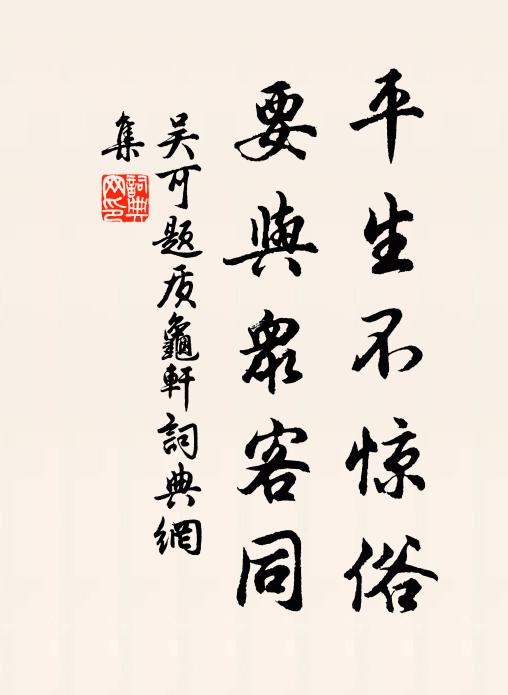 平生不惊俗
要與衆客同
吴可题质龜軒詞典網
集
詞典網印